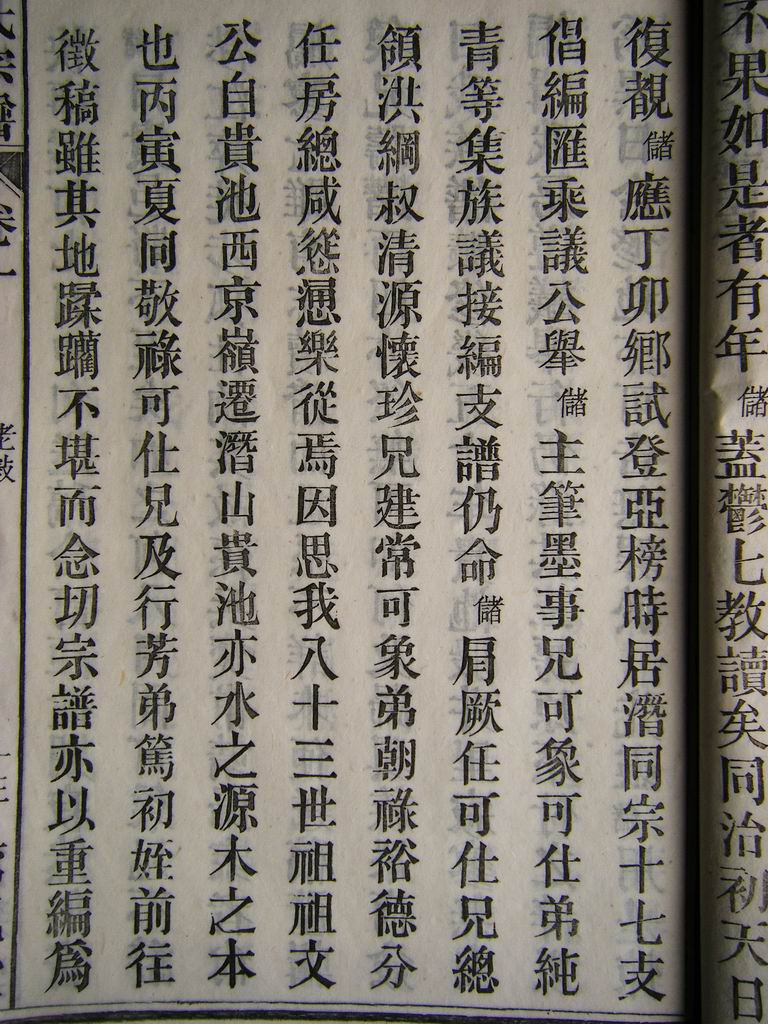 不果如是者有年儲蓋鬱七教讀矣同治初天日
復覩儲應丁卯鄉試登亞榜時居潛同宗十七支
倡編匯乘議公舉儲主筆墨事兄可象可仕弟純
青等集族議接編支譜仍命儲肩厥任可仕兄總
領洪綱叔清源懷珍兄建常可象弟朝祿裕德分
任房總咸慫慂樂從焉因思我八十三世祖祖文
公自貴池西京嶺遷潛山貴池亦水之源木之本
也丙寅夏同敬祿可仕兄及行芳弟篤初姪前往
徵稿雖其地蹂躪不堪而念切宗譜亦以重編爲
氏宗譜 卷一